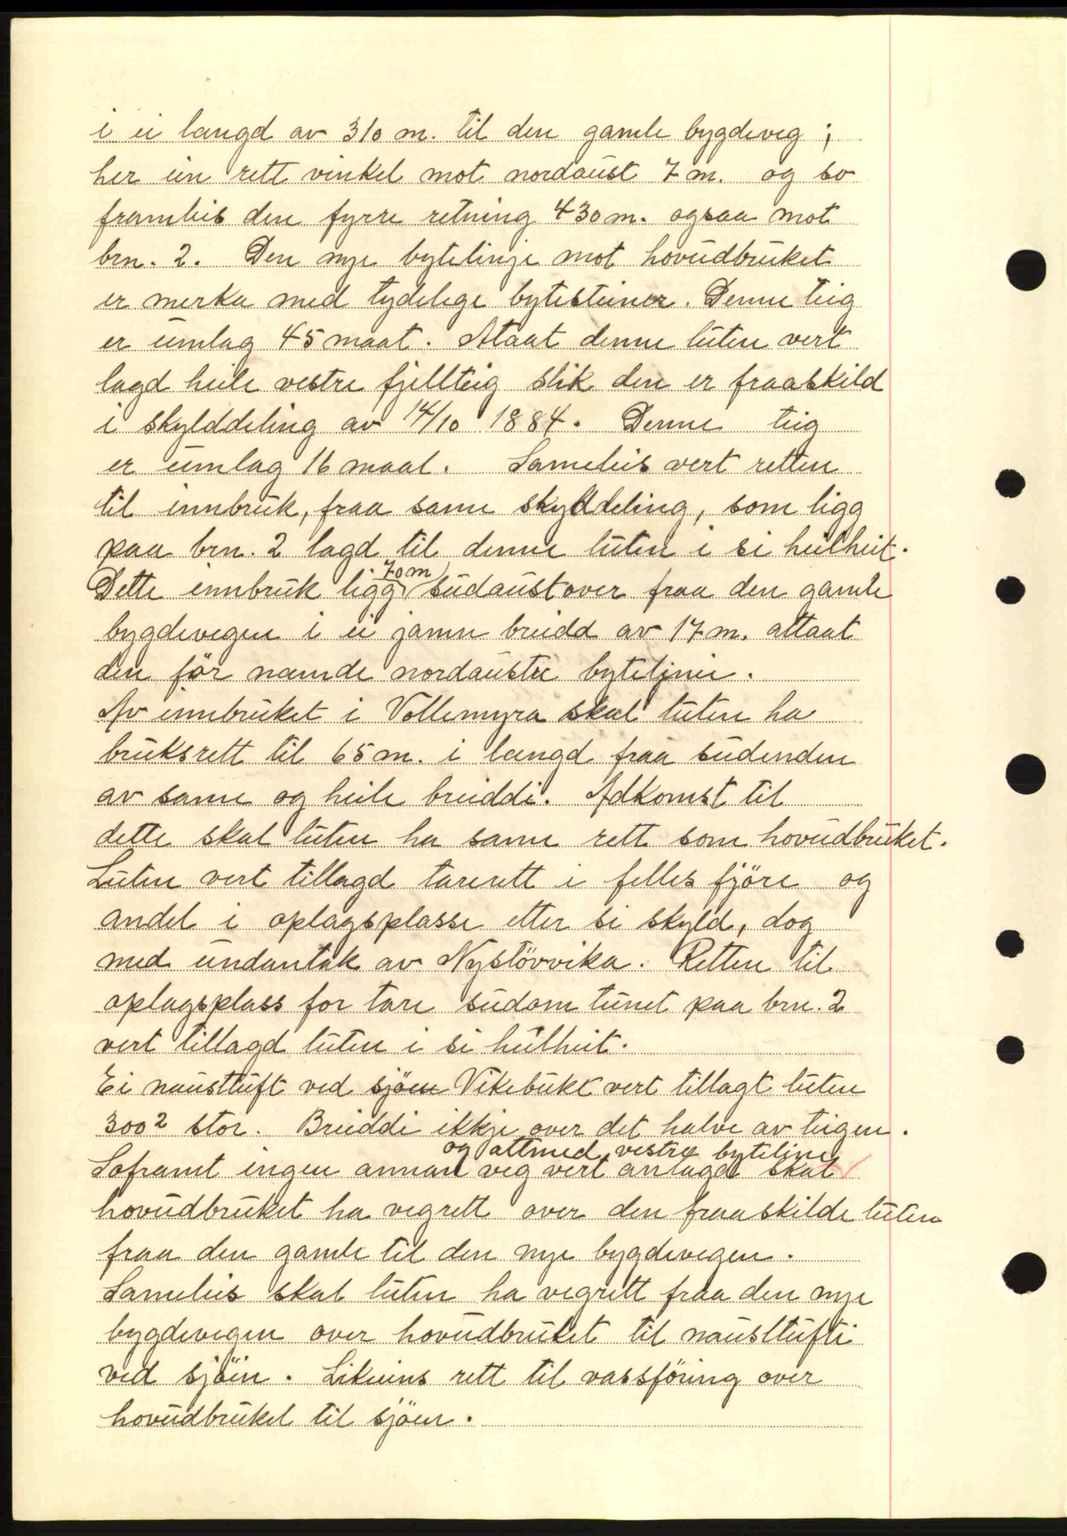 i ei langd av 310 m. til den gamle bygdeveg ;
her ein rett vinkel mot nordaust 7 m. og so
framleis den fyrre retning 430 m. ogsaa mot
brn. 2. Den nye bytelinje mot hovudbruket
er merka med tydelege bytesteiner. Denne teig
er umlag 45 maal. Ataat denne luten vert
lagd heile vestre fjellteig slik den er fraaskild
i skylddeling av 14/10 1884. Denne teig
er umlag 16 maal. Sameleis vert retten
til innbruk, fraa same skylddeling, som ligg
paa brn. 2 lagd til denne luten i si heilheit.
Dette innbruk ligg 70 m sudaustover fraa den gamle
bygdevegen i ei jamn breidd av 17 m. attaat
den för namnde nordaustre byteljnie.
Av innbruket i Vollemyra skal luten ha
bruksrett til 65 m. i langd fraa sudenden
av same og heile breiddi. Adkomst til
dette skal luten ha same rett som hovudbruket.
Luten vert tillagd tarerett i felles fjöre og
andel i oplagsplasse etter si skyld, dog
med undantak av Nystövvika. Retten til
oplagsplass for tare sudom tunet paa brn. 2
vert tillagd luten i si heilheit.
Ei naustluft ved sjöen Vikebukt vert tillagt luten
300² stor. Breiddi ikkje over det halve av teigen.
og attmed vestre byteline
Soframt ingen annan veg vert anlagd skal
hovudbruket ha vegrett over den fraaskilde luten
fraa den gamle til den nye bygdevegen.
Sameleis skal luten ha vegrett fraa den nye
bygdevegen over hovudbruket til naustlufti
ved sjöen. Likeeins rett til vassföring over
hovudbruket til sjöen.